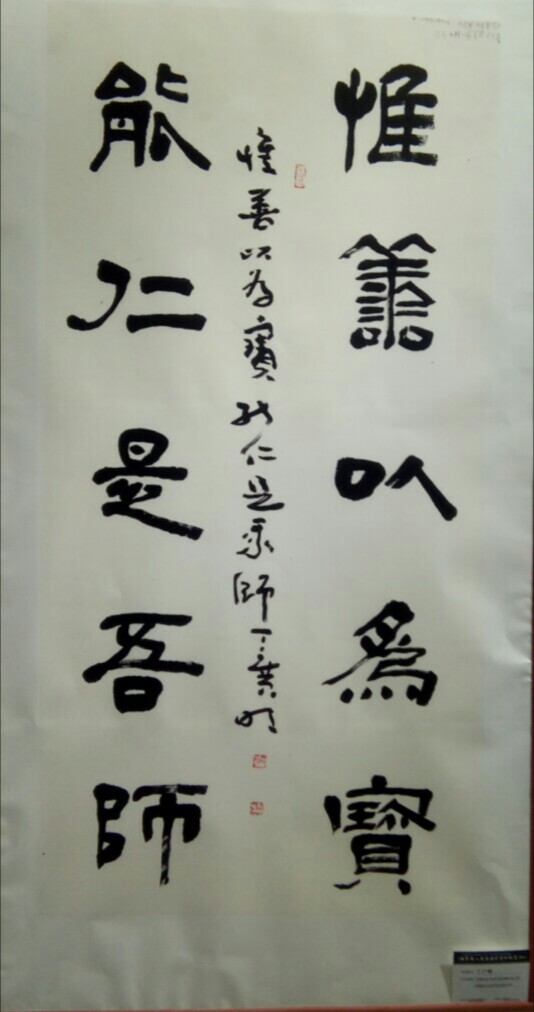 惟譱以為寶
能仁是吾師
惟善以為寶能仁是師